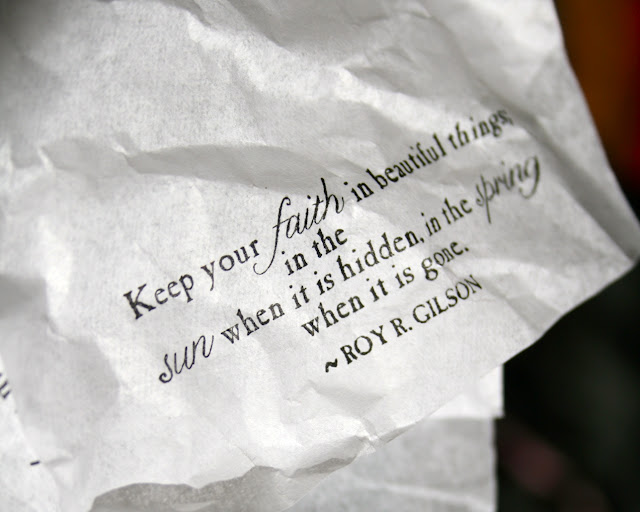 Keep your faith in beautiful things;
in the
sun when it is hidden, in the spring
when it is gone.
~ROY R. GILSON